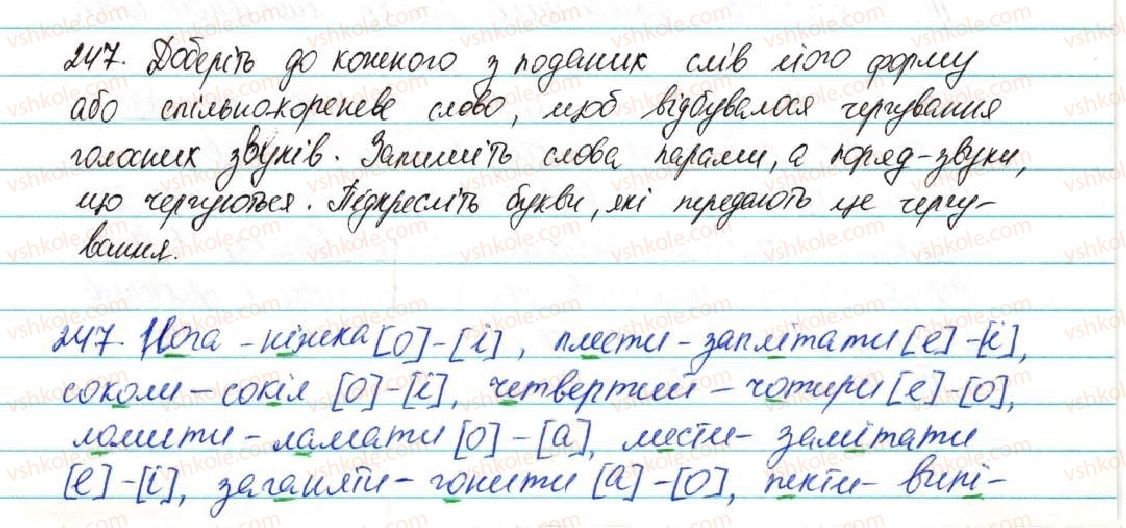 247. Доберіть до кожного з поданих слів його форму
або спільнокореневе слово, щоб відбувалося чергування
голосних звуків. Запишіть слова парами, а поряд-звуки,
що чергуються. Підкресліть букви, які передають це чергу-
вання.
247. Нога - ніжка [о]-[і], плести - заплітати [е]-[і],
соколи - сокіл [о]-[і], четвертий - чотири [е]-[о],
ломити - ламати [о]-[а], мести - замітати
[е]-[і], заганяти - гонити [а]-[о], пекти - випі-